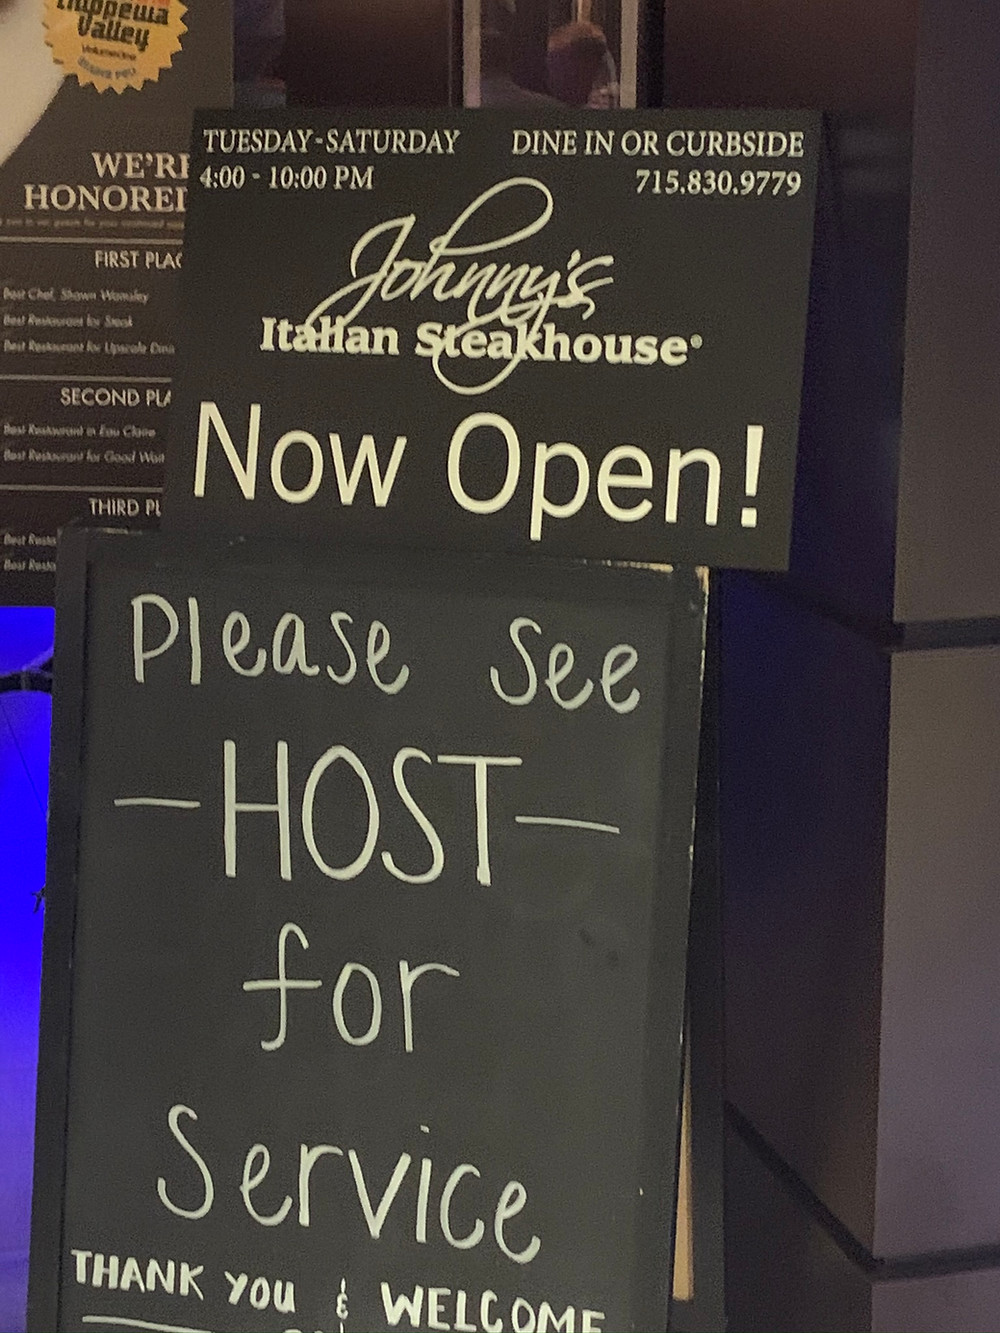 Valley
WE'RE
HONORED
FIRST PLAC
Best Chef, Shawn Wamsley
Best Restaurant for Steak
Best Restaurant for Upscale Dini
SECOND PLA
Best Restaurant in Eau Claire
Best Restaurant for Good Wait
THIRD PL
Best Resta
Best Resta
TUESDAY-SATURDAY DINE IN OR CURBSIDE
4:00 - 10:00 PM 715.830.9779
Johnny's
Italian Steakhouse®
Now Open!
Please See
-HOST-
for
Service
THANK YOU & WELCOME